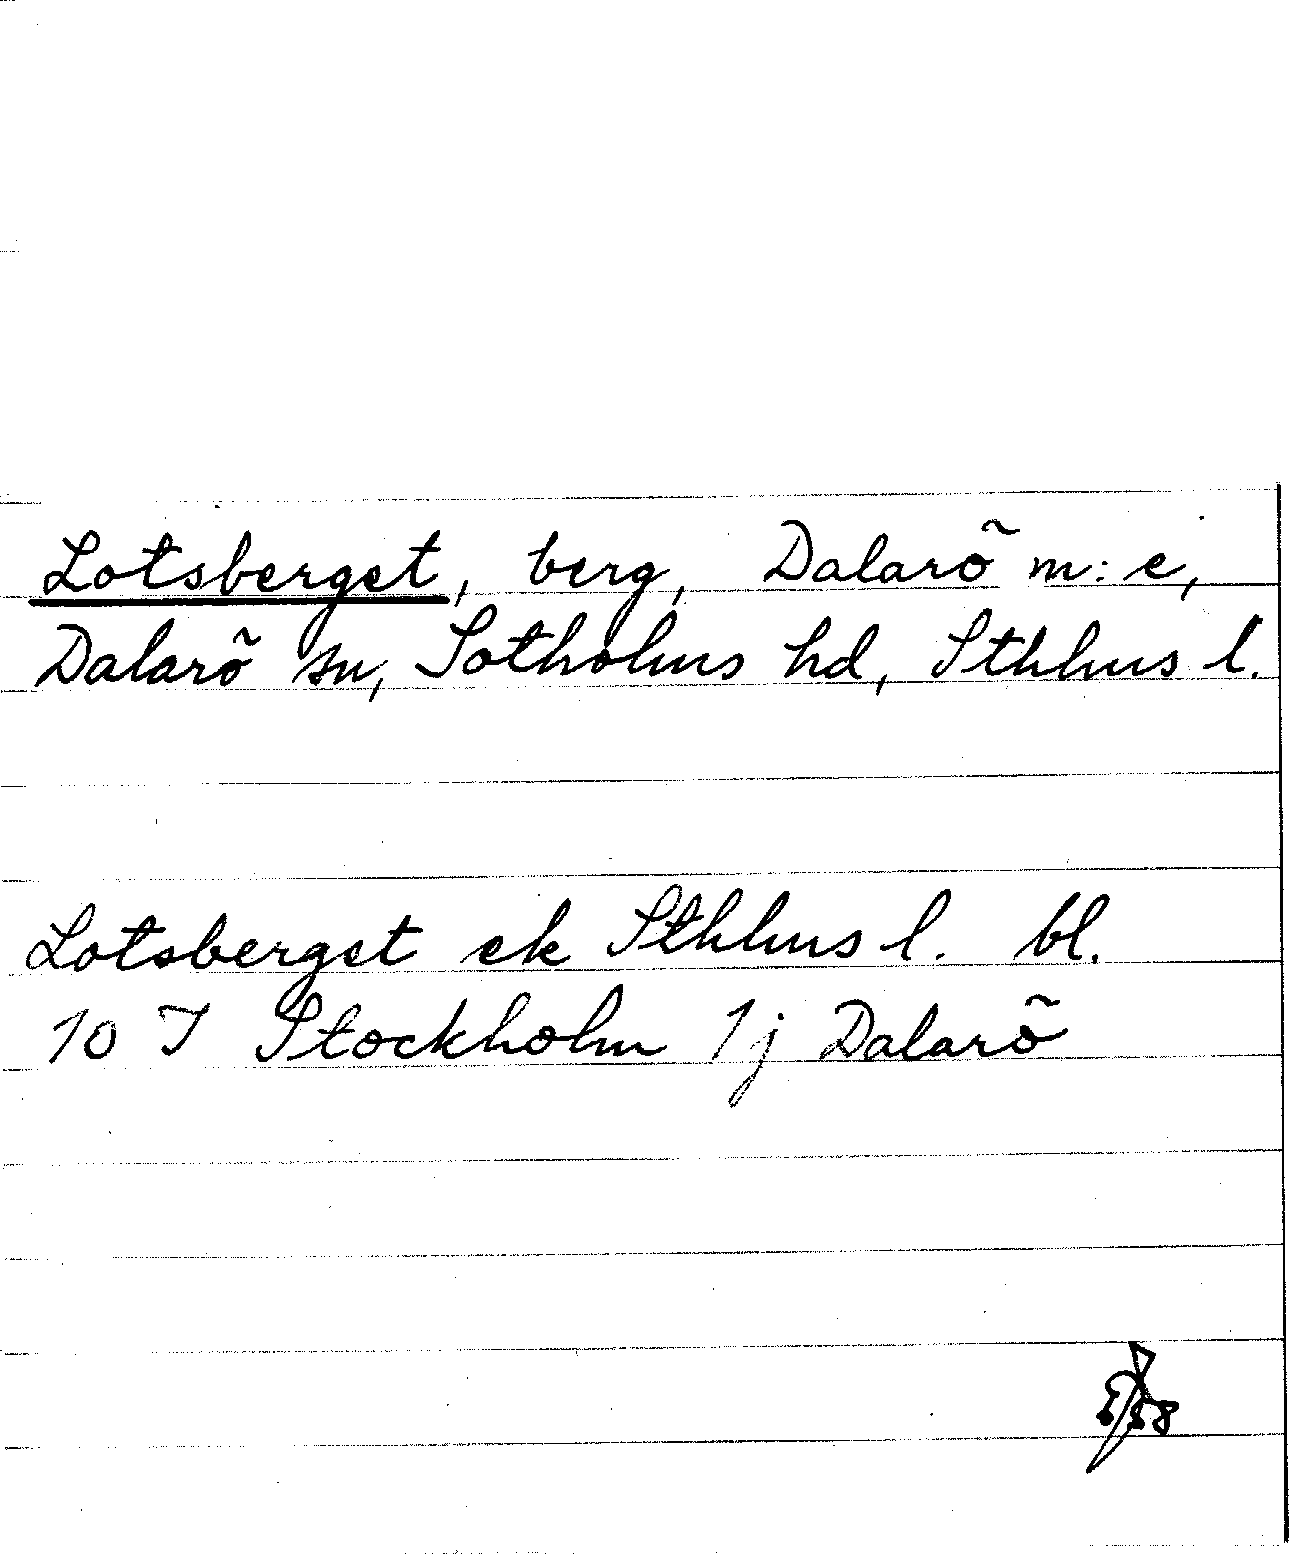 Lotsberget, berg, Dalarö m:e,
Dalarö sn, Sotholms hd, Sthlms l.
Lotsberget ek Sthlms l. bl.
10 I Stockholm 1j Dalarö